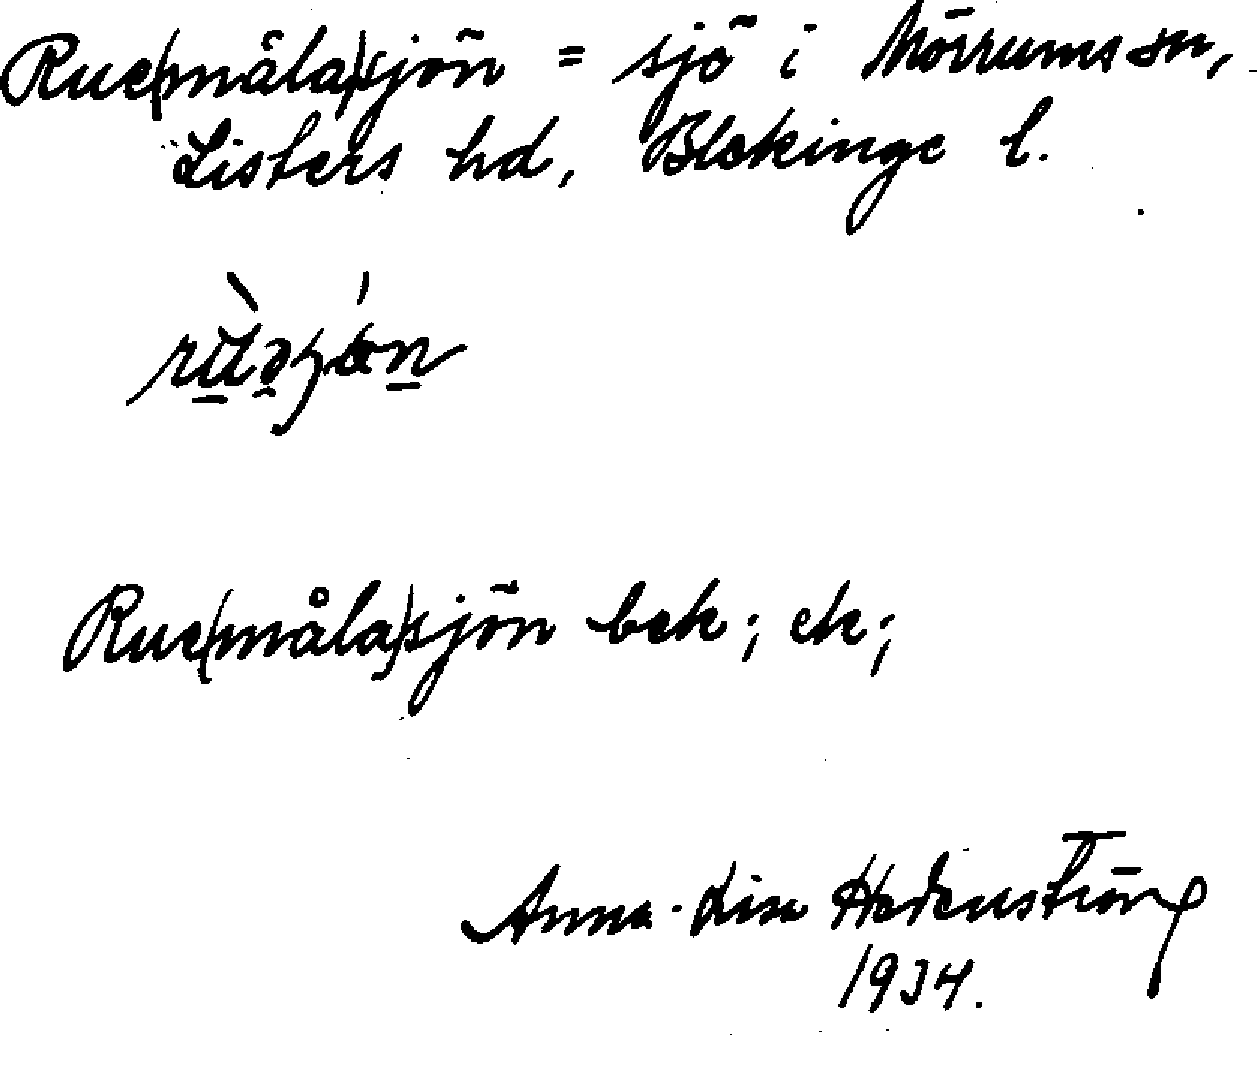 Rue(måla)sjön = sjö i Mörrums sn,
Listers hd, Blekinge l.
Rue(måla)sjön bek; ek;
Anna-Lisa Hedenström
1934.